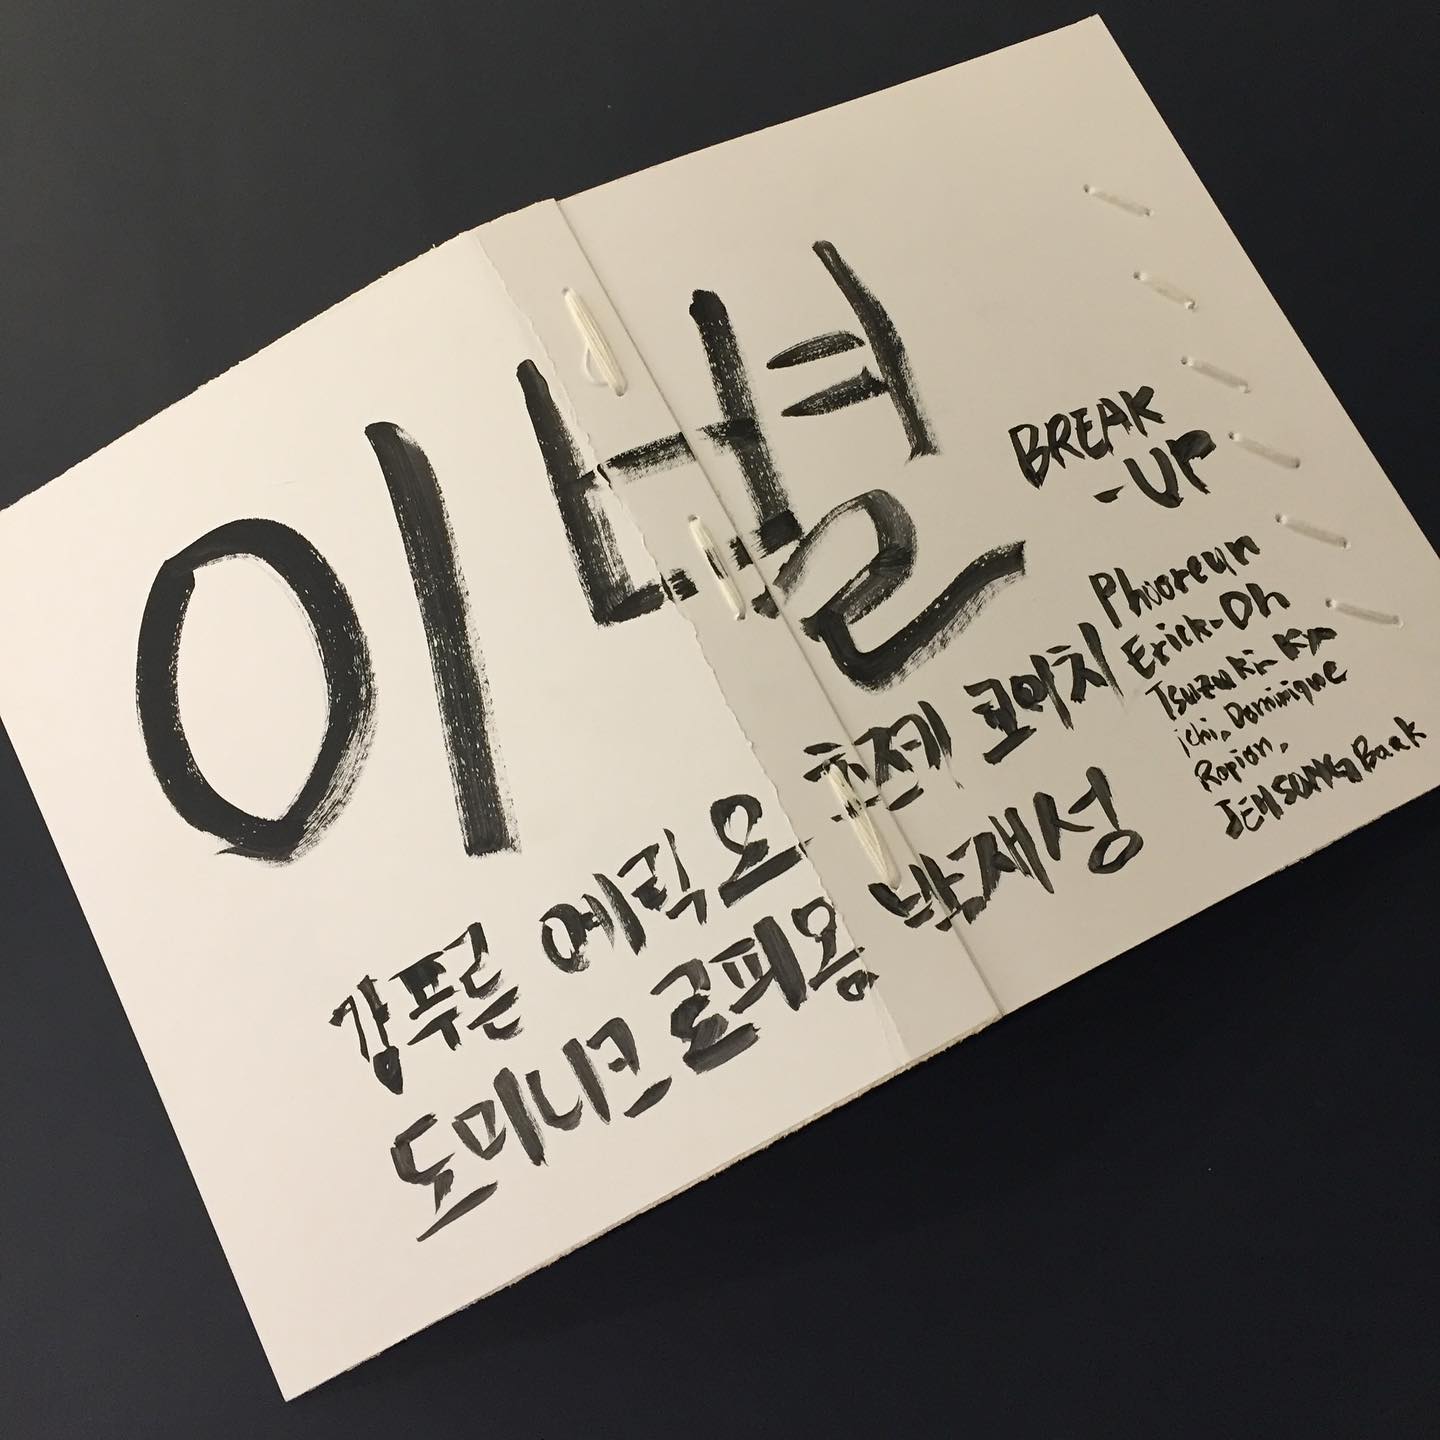 이별
BREAK
-UP
강푸른 에릭 오 코이치
도미니크 로피옹 박재성
Phooreun
Erick-Oh
Tsuzuki Ko
ichi, Dominique
Ropion,